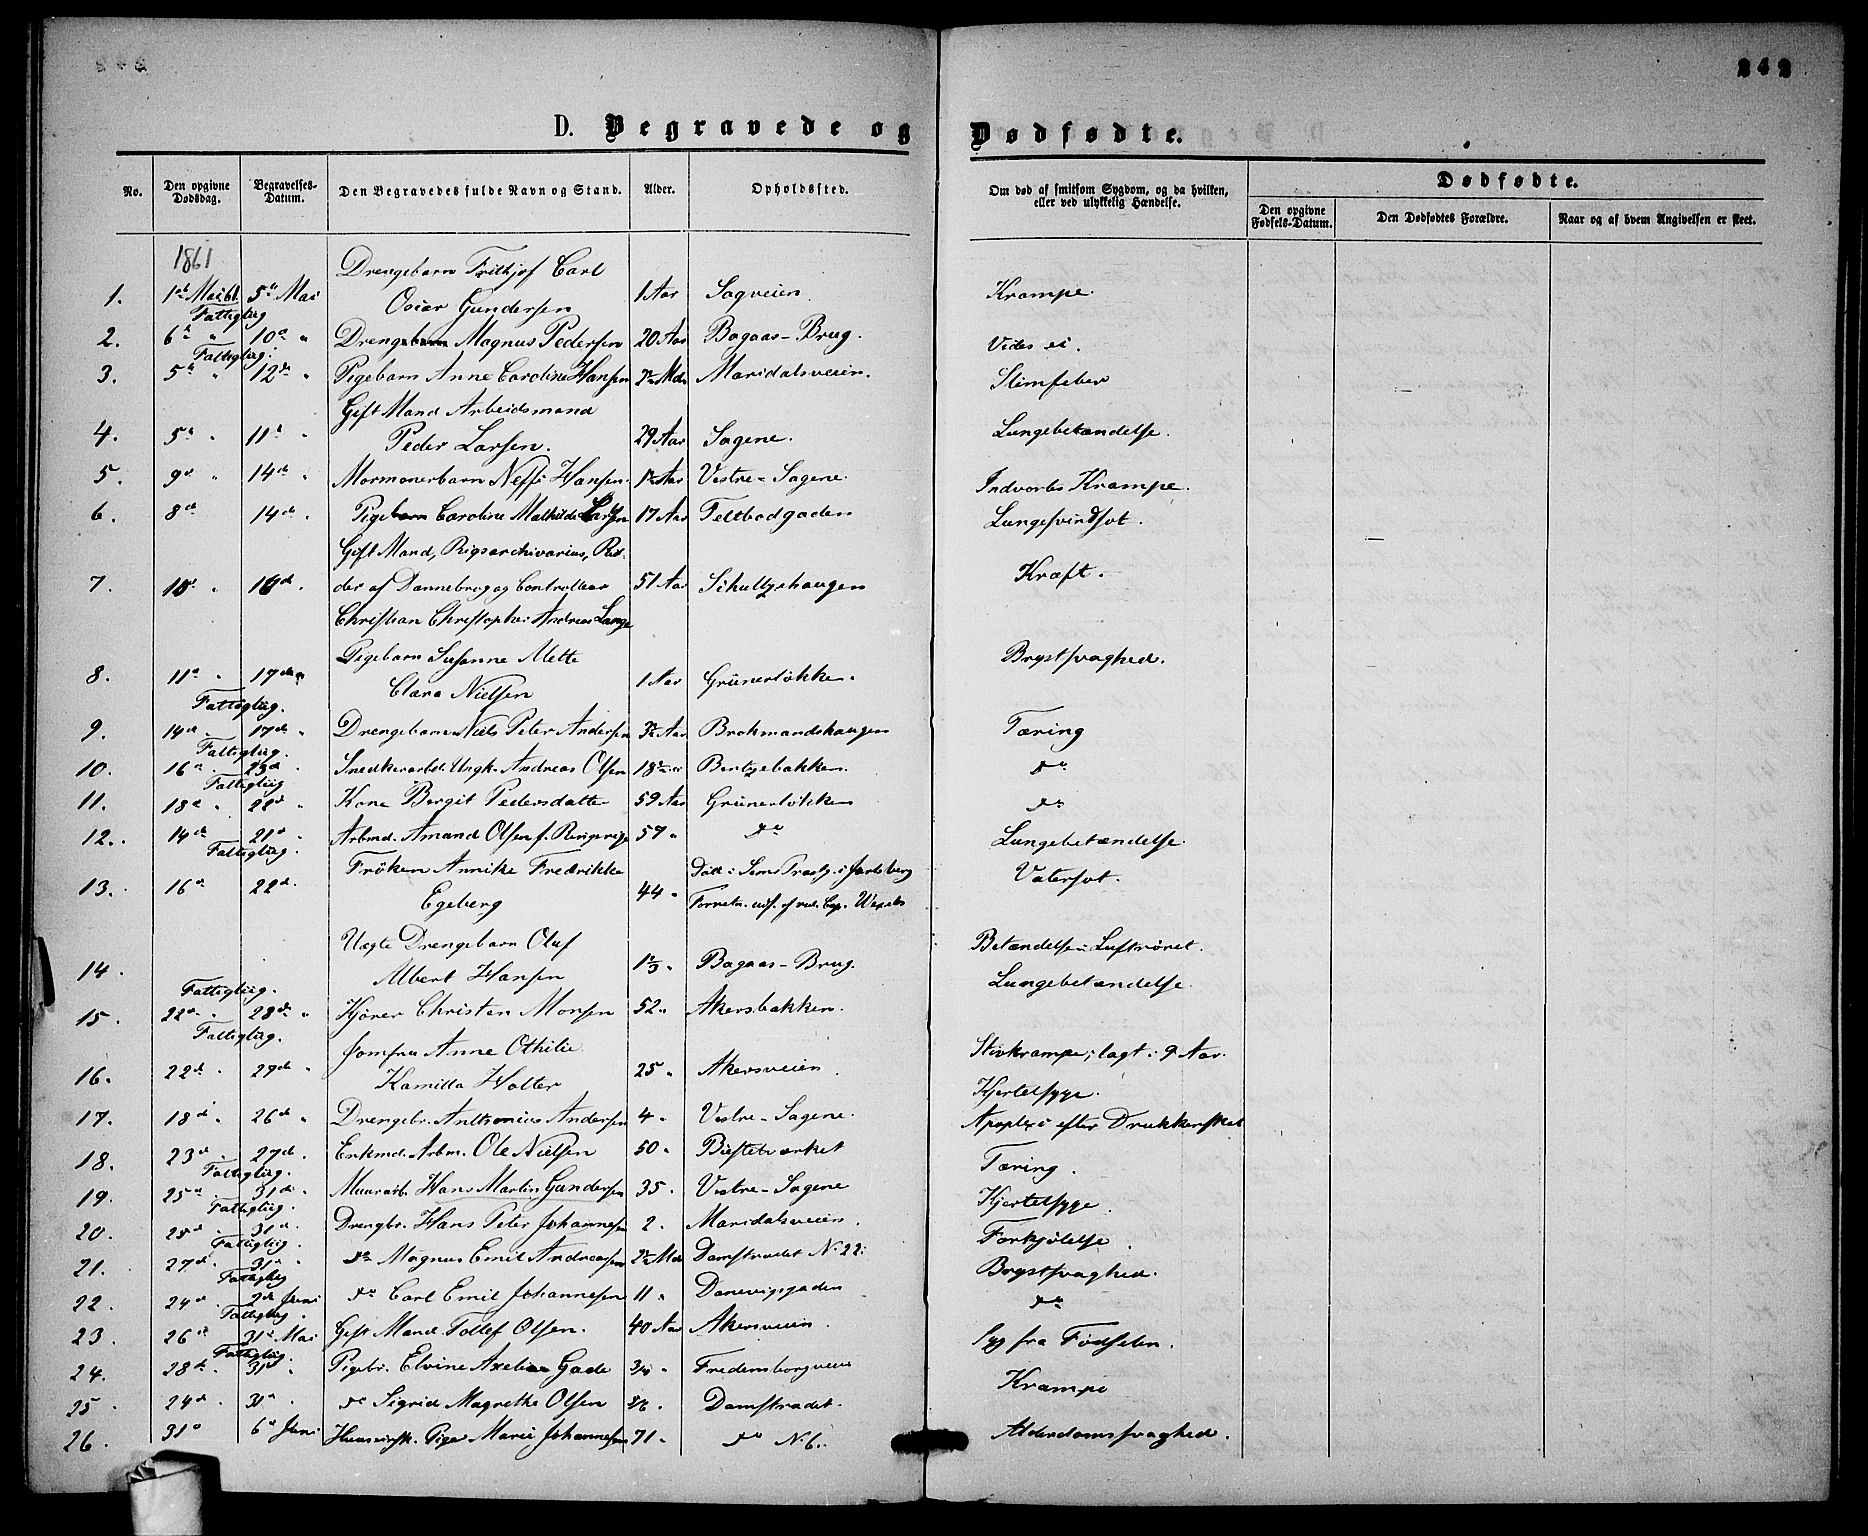 242
D. Begravede og Dødfødte.
No. Den opgivne Dødsdag. Begravelses-Datum. Den Begravedes fulde Navn og Stand. Alder. Opholdssted. Om død af smitsom Sygdom, og da hvilken, eller ved ulykkelig Hændelse. Dødfødte.
Den opgivne Fødsels-Datum. Den Dødfødtes Forældre. Naar og af hvem Angivelsen er skeet.
1861
Drengebarn Frithjof Carl
1. 5te Mai Oscar Gundersen 1 Aar Sagveien Krampe.
Fattiglig
2. 6te " 10de " Dreng Magnus Pedersen 20 Aar Bagaas-Brug. Vides ei.
Fattiglig.
3. 5te " 12de " Pigebarn Anne Caroline Hansen Maridalsveien. Slimfeber
Gift Mand Arbeidsmand
4. 5te " 11te " Peder Larsen. 29 Aar Sagene. Lungebetændelse.
5. 9de " 14de " Mormonerbarn Neffi Hansen. Vestre-Sagene. Indvortes Krampe.
6. 8de 14de " Pige Caroline Mathilde Larsen 17 Aar Feltbodgaden Lungesvindsot.
Gift Mand, Rigsarchivarius, Rid-
7. 10de " 16de " der af Dannebrog og Controlleur 51 Aar Schultzehaugen Kræft.
Christian Christopher Andreas Lange
Pigebarn Susanne Mette
8. 11te " 17de " Clara Nielsen 1 Aar Grünerløkken. Brystsvaghed.
Fattiglig.
9. 14de 17de " Drengebarn Niels Peter Andersen Brokmandshaugen Tæring
Fattiglig.
10. 16de " 23de " Snedkerarbd. Ungk. Andreas Olsen Bentzebakken. do
Fattiglig
11. 18de " 22de " Kone Bergit Pedersdatter 59 Aar Grünerløkken do
12. 14de 21de " Arbmd. Amand Olsen f. Ringerige 57 " do Lungebetændelse.
Fattiglig.
Frøken Annike Fredrikke Død i Sems Præstg. i Jarlsberg
13. 16de 22de " Egeberg 44 " Wexels Vatersot.
Uægte Drengebarn Oluf Betændelse i Luftrøret.
14. Albert Hansen Bagaas-Brug. Lungebetændelse.
Fattiglig.
15. 22de " 28de " Kjører Christen Monsen 52 " Akersbakken.
Fattiglig.
Jomfru Anne Othilie Stivkrampe; lagt i 9 Aar.
16. 22de " 29de " Kamilla Holter 25 " Akersveien.
17. 18de " 26de " Drengebr. Anthonius Andersen 4 " Vestre-Sagene. Kjertelsyge.
18. 23de " 27de " Enkmd. Arbm. Ole Nielsen 50 " Apoplexi efter Drukkenskab
Fattiglig.
19. 25de " 31de " Muurarb. Hans Martin Gundersen 35 " Vestre-Sagene Tæring.
Fattiglig.
20. 25de " 31de " Drengbr. Hans Peter Johannesen 2 " Maridalsveien. Kjertelsyge.
Fattiglig.
21. 27de " 31te " do Magnus Emil Andreassen Damstrædet No 22. Forkjølelse.
Fattiglig
22. 24de " 2de Juni do Carl Emil Johannesen 11 " Danevigsgaden Brystsvaghed.
Fattiglig.
23. 26de " 31te Mai Gift Mand Tollef Olsen. 40 Aar Akersveien. do
Fattiglig.
24. 28de " 31te " Pigebr. Elvine Axeline Gade Fredensborgveien Syg fra Fødselen.
25. 24de " 31te " do Sigrid Magrethe Olsen Damstrædet. Krampe
26. 31te 6te Juni Pige Marie Johannesen 71 " do N 6. Alderdomssvaghed.